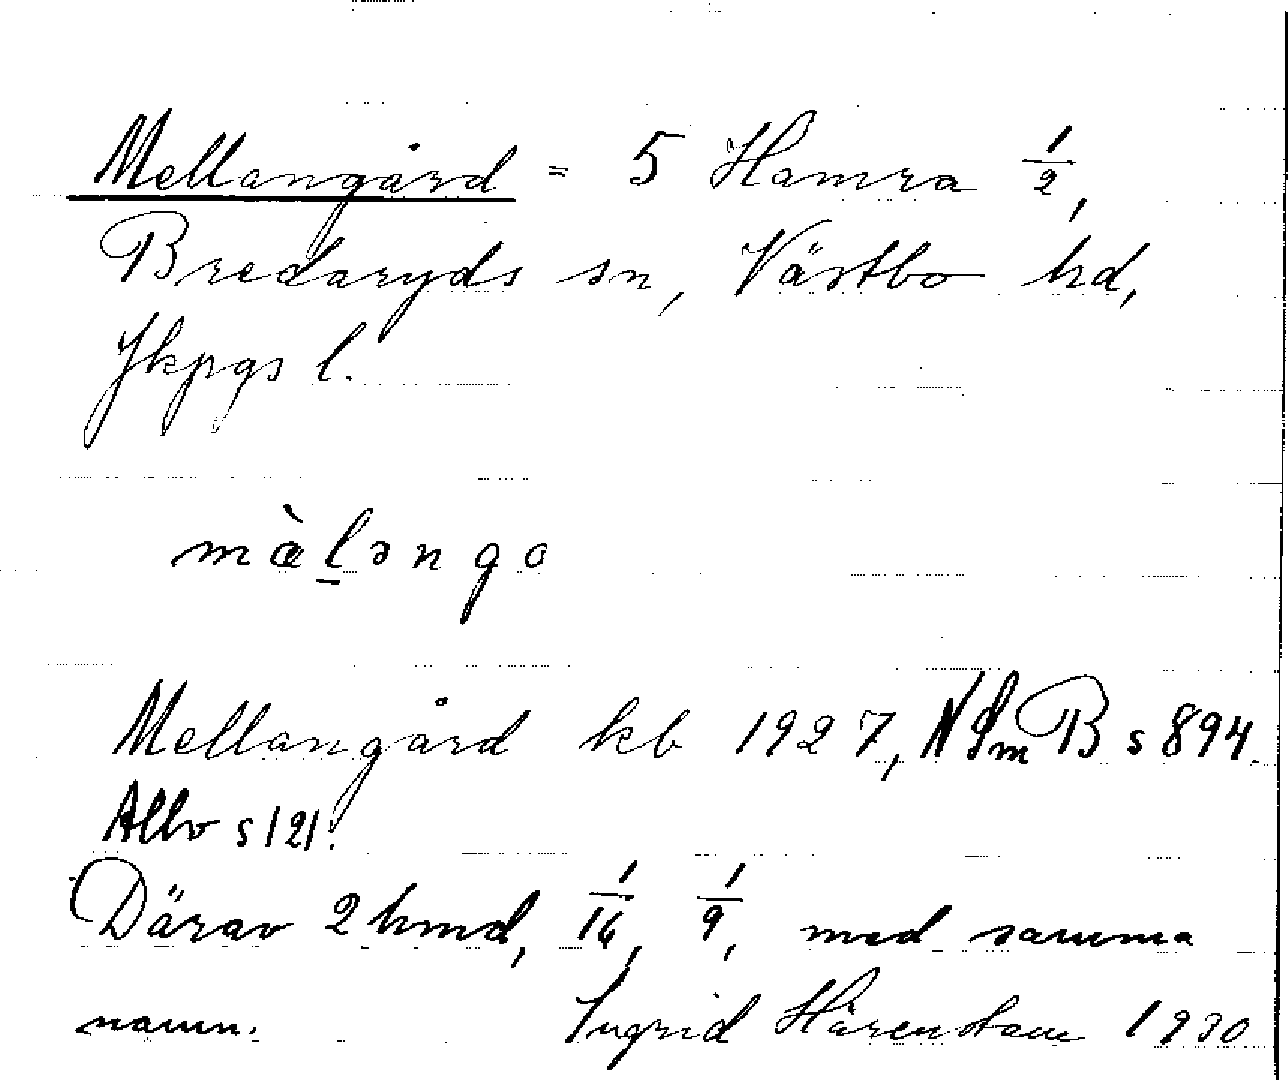 Mellangård = 5 Hamra 1/2,
Bredaryds sn, Västbo hd,
Jkpgs l.
mæ̀l̠əngo
Mellangård kb 1927, NSmB s 894
Allbo s 121.
Därav 2 hmd, 1/16, 1/9, med samma
namn. Ingrid Härenstam 1930